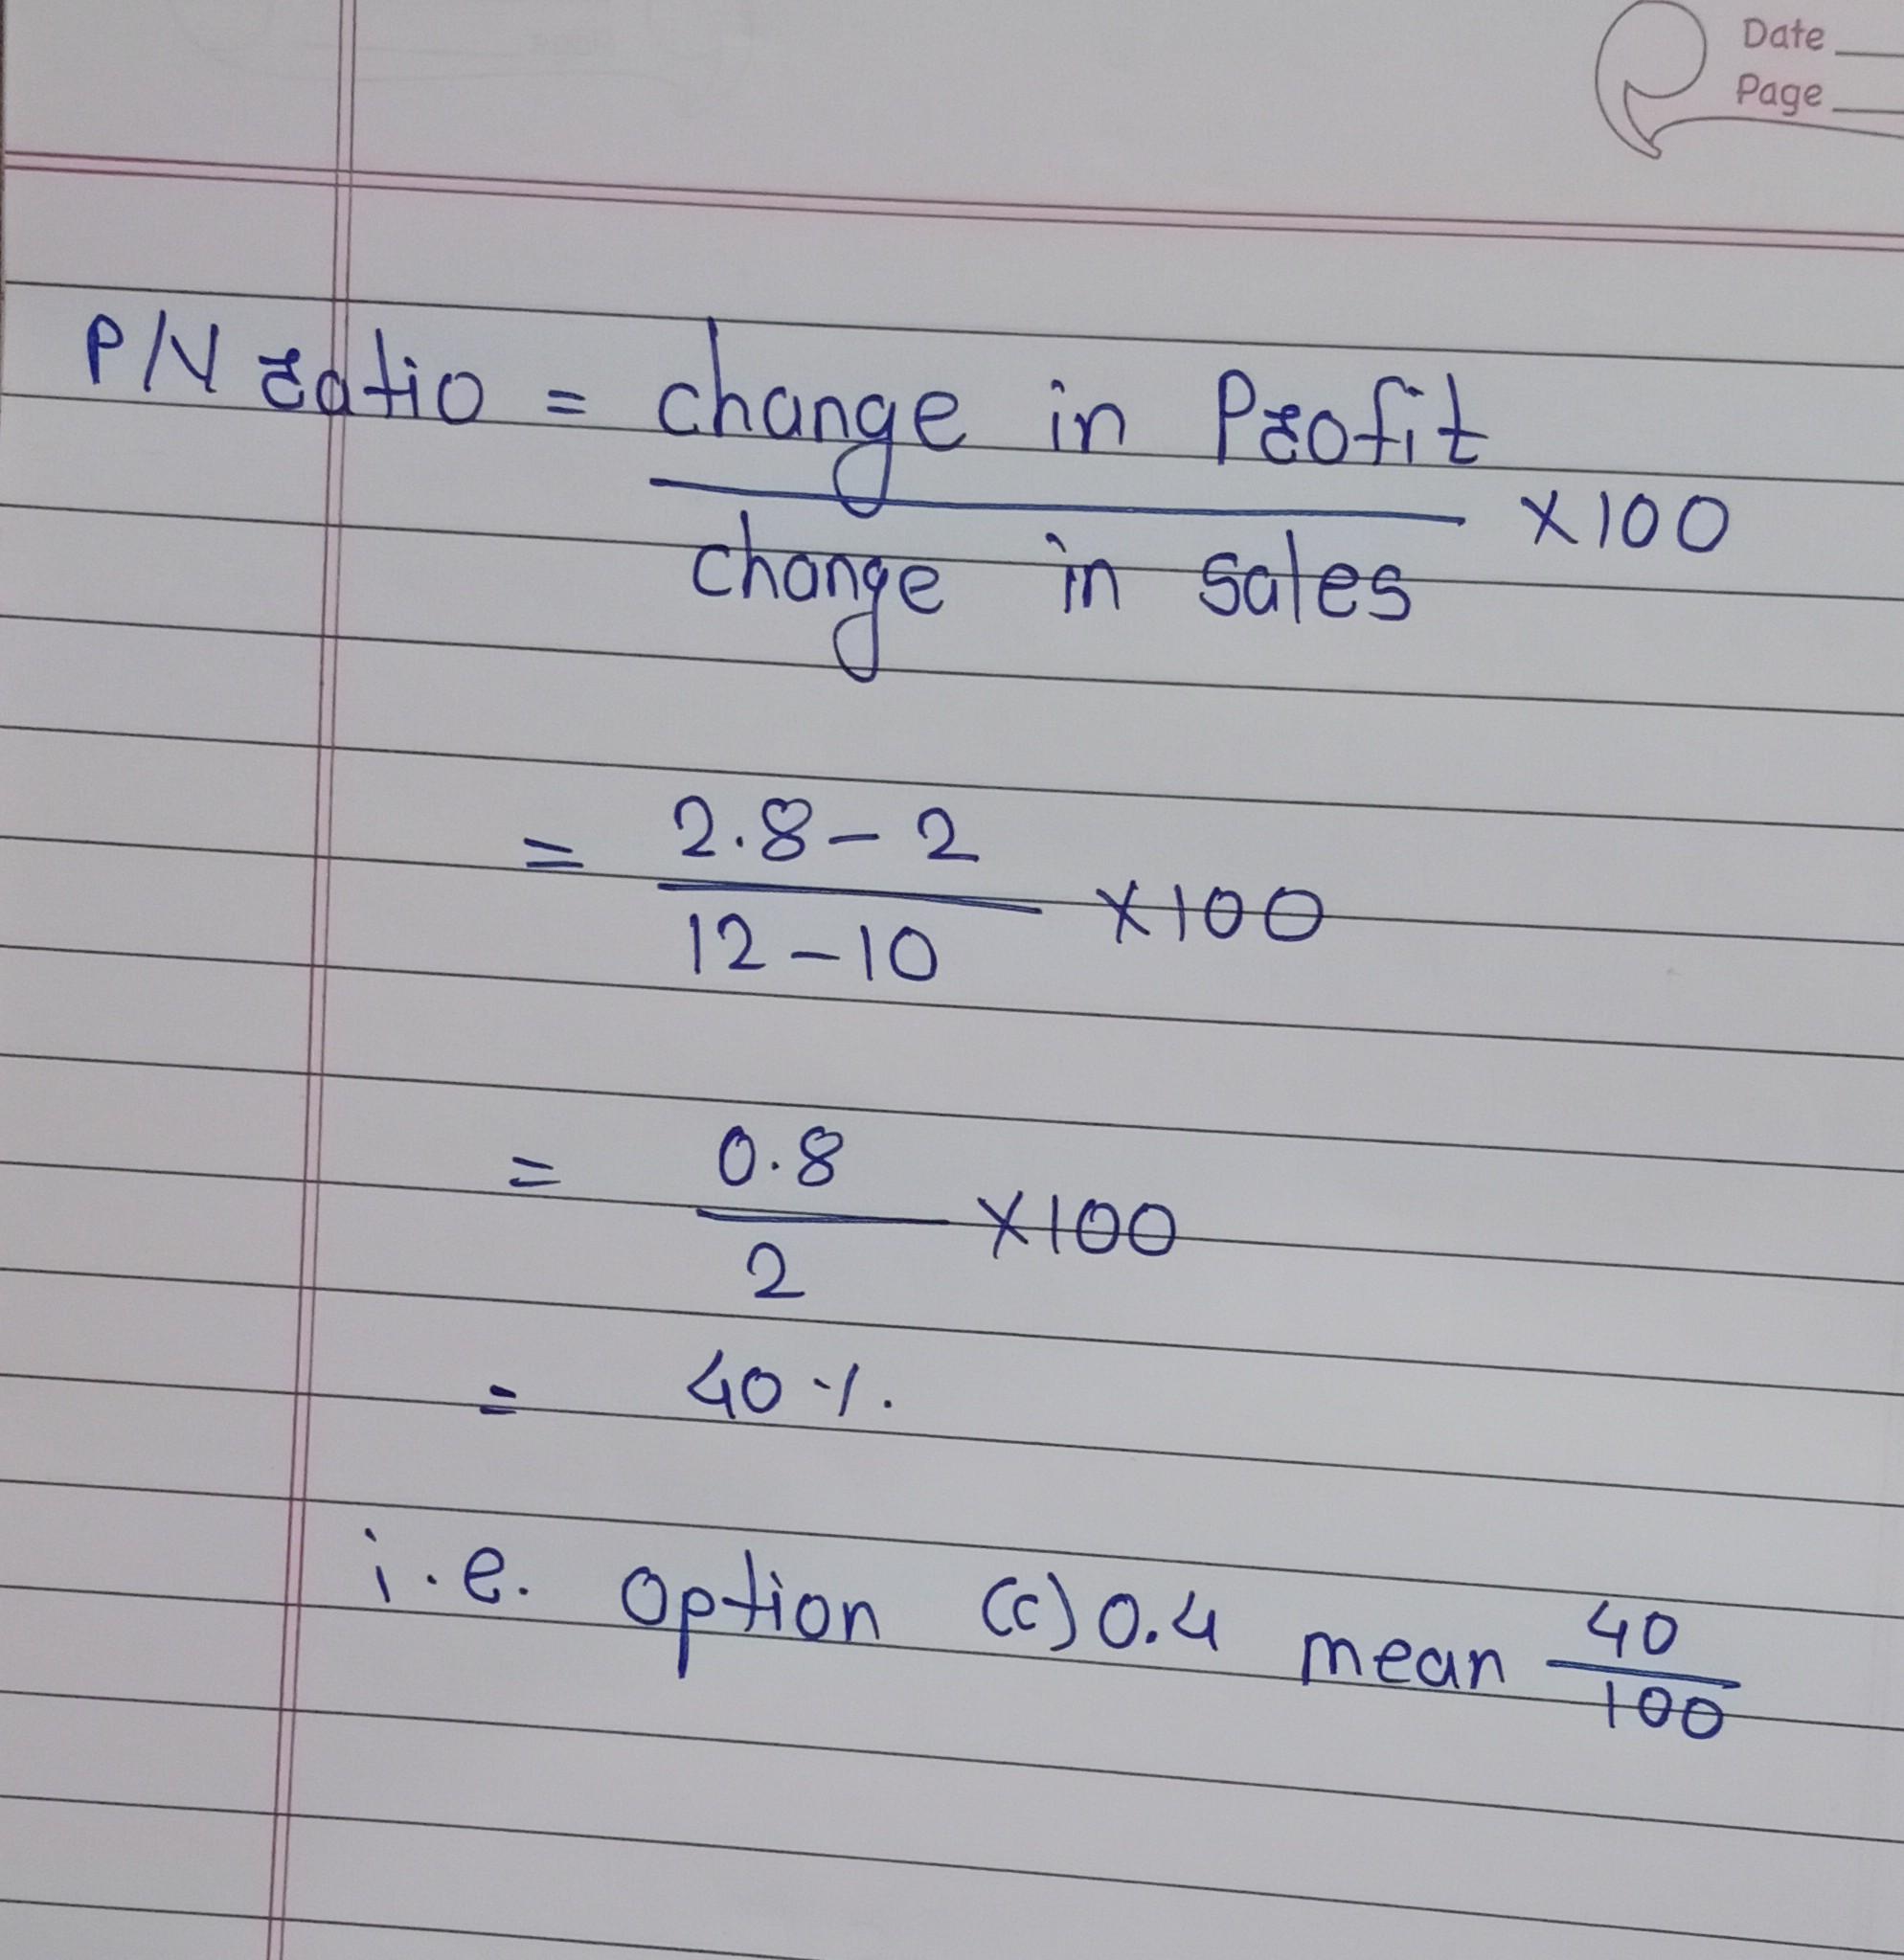 Date
Page
P/V ratio = change in Profit
change in sales
×100
= 2.8 - 2
12 - 10
×100
= 0.8
2
×100
= 40 %.
i.e. option (c) 0.4 mean 40
100